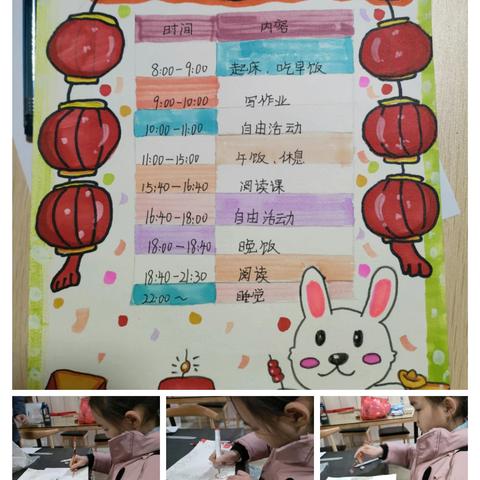 时间 内容
8:00-9:00 起床、吃早饭
9:00-10:00 写作业
10:00-11:00 自由活动
11:00-15:00 午饭、休息
15:40-16:40 阅读课
16:40-18:00 自由活动
18:00-18:40 晚饭
18:40-21:30 阅读
22:00~ 睡觉